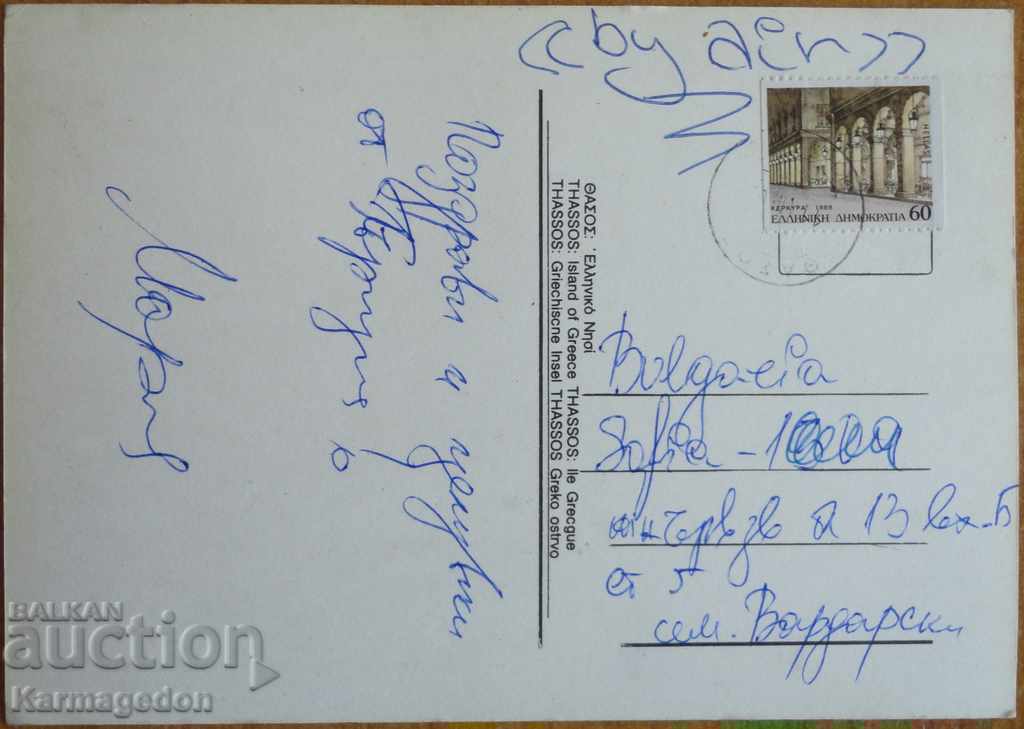 « by air »
Поздрави и целувки
от Гърция
ΘΑΣΟΣ: Ἑλληνικό Νησί
THASSOS: Island of Greece THASSOS: Ile Grecque
THASSOS: Griechiscne Insel THASSOS Greko ostrvo
HELLAS
ΚΕΡΚΥΡΑ 1988
ΕΛΛΗΝΙΚΗ ΔΗΜΟΚΡΑΤΙΑ 60
Bulgaria
Sofia -
13 вх-Б
ет 5
сем. Вардарски
BALKAN
auction
Karmagedon